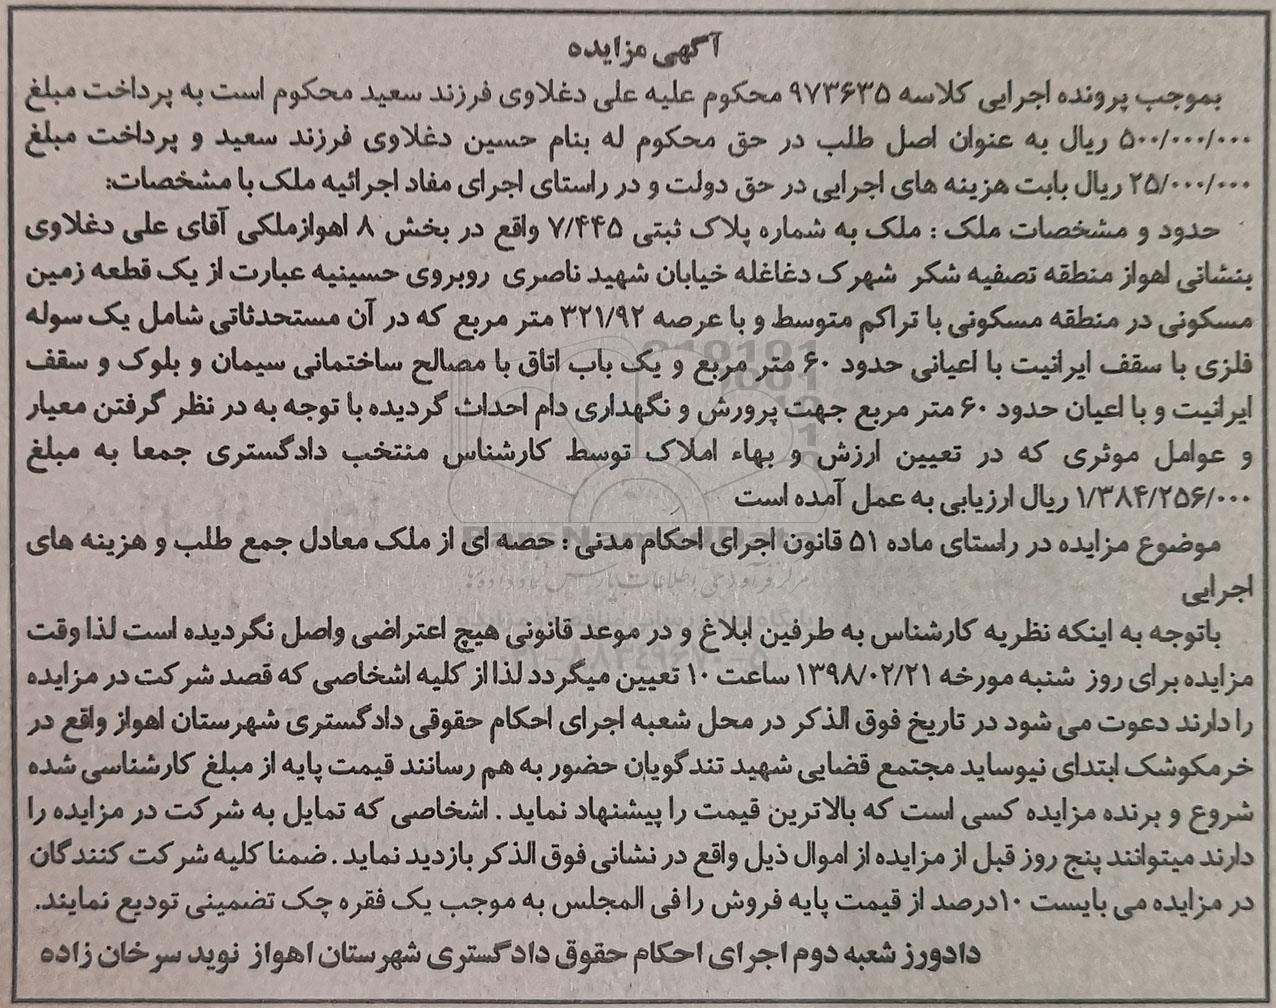 آگهی مزایده
بموجب پرونده اجرایی کلاسه ۹۷۳۶۳۵ محکوم علیه علی دغلاوی فرزند سعید محکوم است به پرداخت مبلغ
۵۰۰/۰۰۰/۰۰۰ ریال به عنوان اصل طلب در حق محکوم له بنام حسین دغلاوی فرزند سعید و پرداخت مبلغ
۲۵/۰۰۰/۰۰۰ ریال بابت هزینه های اجرایی در حق دولت و در راستای اجرای مفاد اجرائیه ملک با مشخصات:
حدود و مشخصات ملک : ملک به شماره پلاک ثبتی ۷/۴۴۵ واقع در بخش ۸ اهوازملکی آقای علی دغلاوی
بنشانی اهواز منطقه تصفیه شکر شهرک دغاغله خیابان شهید ناصری روبروی حسینیه عبارت از یک قطعه زمین
مسکونی در منطقه مسکونی با تراکم متوسط و با عرصه ۳۲۱/۹۲ متر مربع که در آن مستحدثاتی شامل یک سوله
فلزی با سقف ایرانیت با اعیانی حدود ۶۰ متر مربع و یک باب اتاق با مصالح ساختمانی سیمان و بلوک و سقف
ایرانیت و با اعیان حدود ۶۰ متر مربع جهت پرورش و نگهداری دام احداث گردیده با توجه به در نظر گرفتن معیار
و عوامل موثری که در تعیین ارزش و بهاء املاک توسط کارشناس منتخب دادگستری جمعا به مبلغ
۱/۳۸۴/۲۵۶/۰۰۰ ریال ارزیابی به عمل آمده است
موضوع مزایده در راستای ماده ۵۱ قانون اجرای احکام مدنی : حصه ای از ملک معادل جمع طلب و هزینه های
اجرایی
باتوجه به اینکه نظریه کارشناس به طرفین ابلاغ و در موعد قانونی هیچ اعتراضی واصل نگردیده است لذا وقت
مزایده برای روز شنبه مورخه ۱۳۹۸/۰۲/۲۱ ساعت ۱۰ تعیین میگردد لذا از کلیه اشخاصی که قصد شرکت در مزایده
را دارند دعوت می شود در تاریخ فوق الذکر در محل شعبه اجرای احکام حقوقی دادگستری شهرستان اهواز واقع در
خرمکوشک ابتدای نیوساید مجتمع قضایی شهید تندگویان حضور به هم رسانند قیمت پایه از مبلغ کارشناسی شده
شروع و برنده مزایده کسی است که بالاترین قیمت را پیشنهاد نماید . اشخاصی که تمایل به شرکت در مزایده را
دارند میتوانند پنج روز قبل از مزایده از اموال ذیل واقع در نشانی فوق الذکر بازدید نماید . ضمنا کلیه شرکت کنندگان
در مزایده می بایست ۱۰درصد از قیمت پایه فروش را فی المجلس به موجب یک فقره چک تضمینی تودیع نمایند.
دادورز شعبه دوم اجرای احکام حقوق دادگستری شهرستان اهواز نوید سرخان زاده